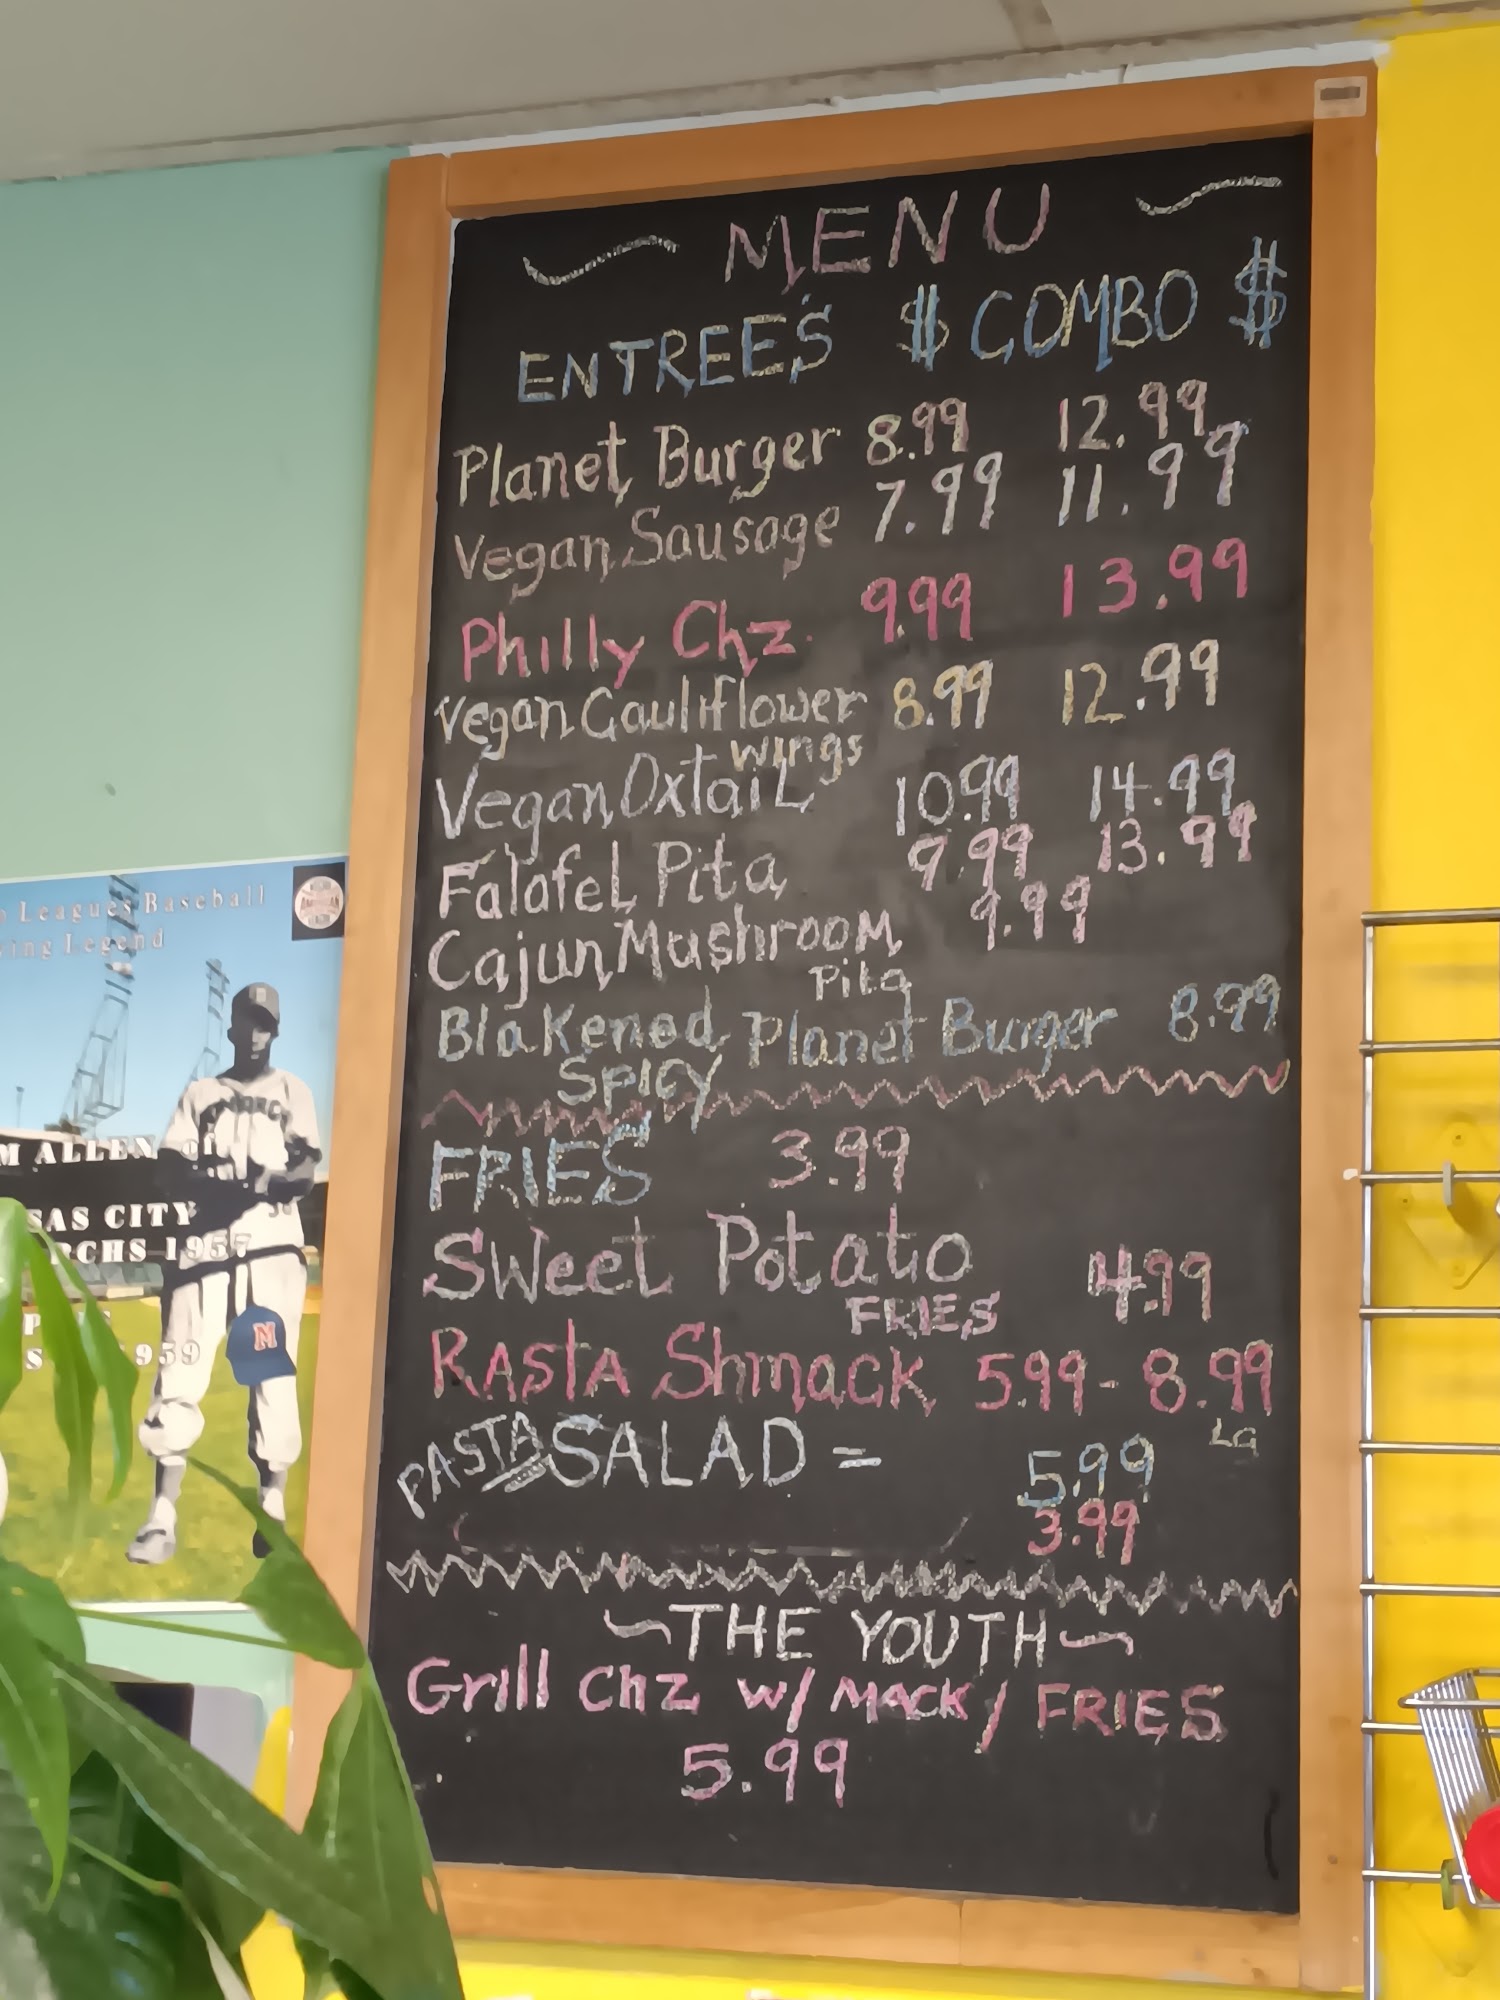 MENU
ENTREE'S $ COMBO $
Planet Burger 8.99 12.99
Vegan Sausage 7.99 11.99
Philly Chz. 9.99 13.99
Vegan Cauliflower 8.99 12.99
wings
Vegan Oxtail 10.99 14.99
Falafel Pita 9.99 13.99
Cajun Mushroom 9.99
Pita
Blakened Planet Burger 8.99
SPICY
FRIES 3.99
Sweet Potato 4.99
FRIES
RASTA Shmack 5.99 - 8.99
Lg
PASTA SALAD = 5.99
3.99
~THE YOUTH~
Grill Chz w/ MACK / FRIES
5.99
Leagues Baseball
Legend
ALLEN of
CITY
1957
1959
M